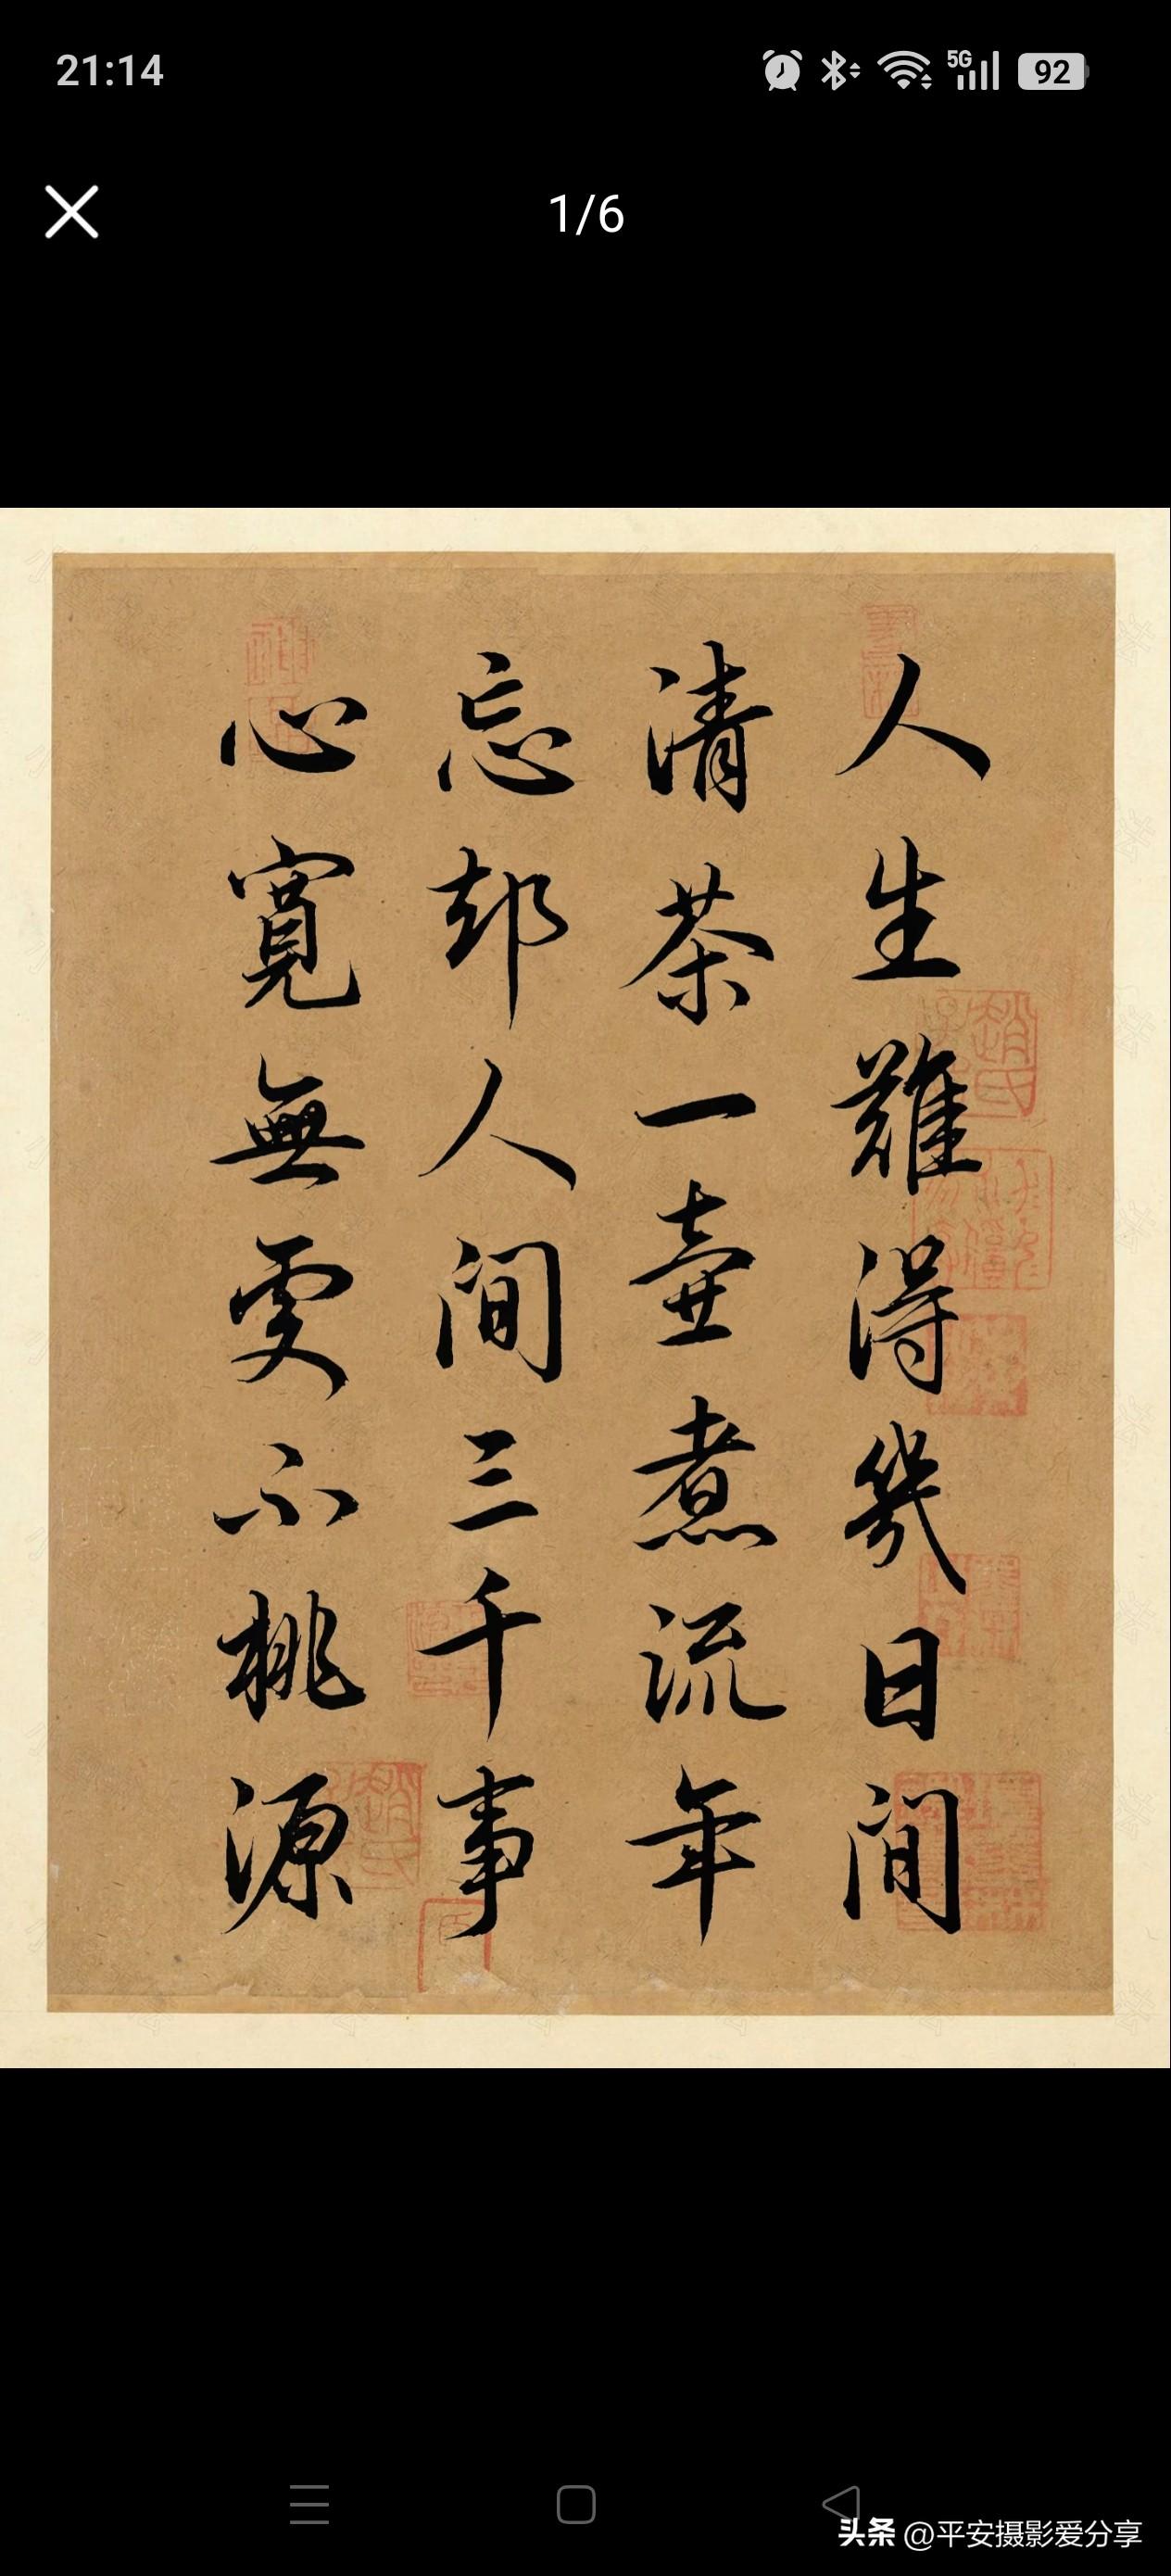 21:14
5G
92
1/6
人生難得幾日間
清茶一壺煮流年
忘却人間三千事
心寬無處不桃源
趙氏
趙氏
头条 @平安摄影爱分享